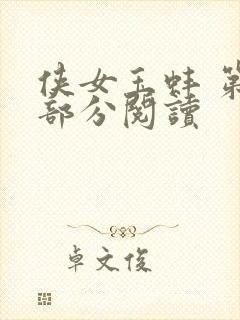 侠女玉蚌 第
部分閱讀
卓文俊